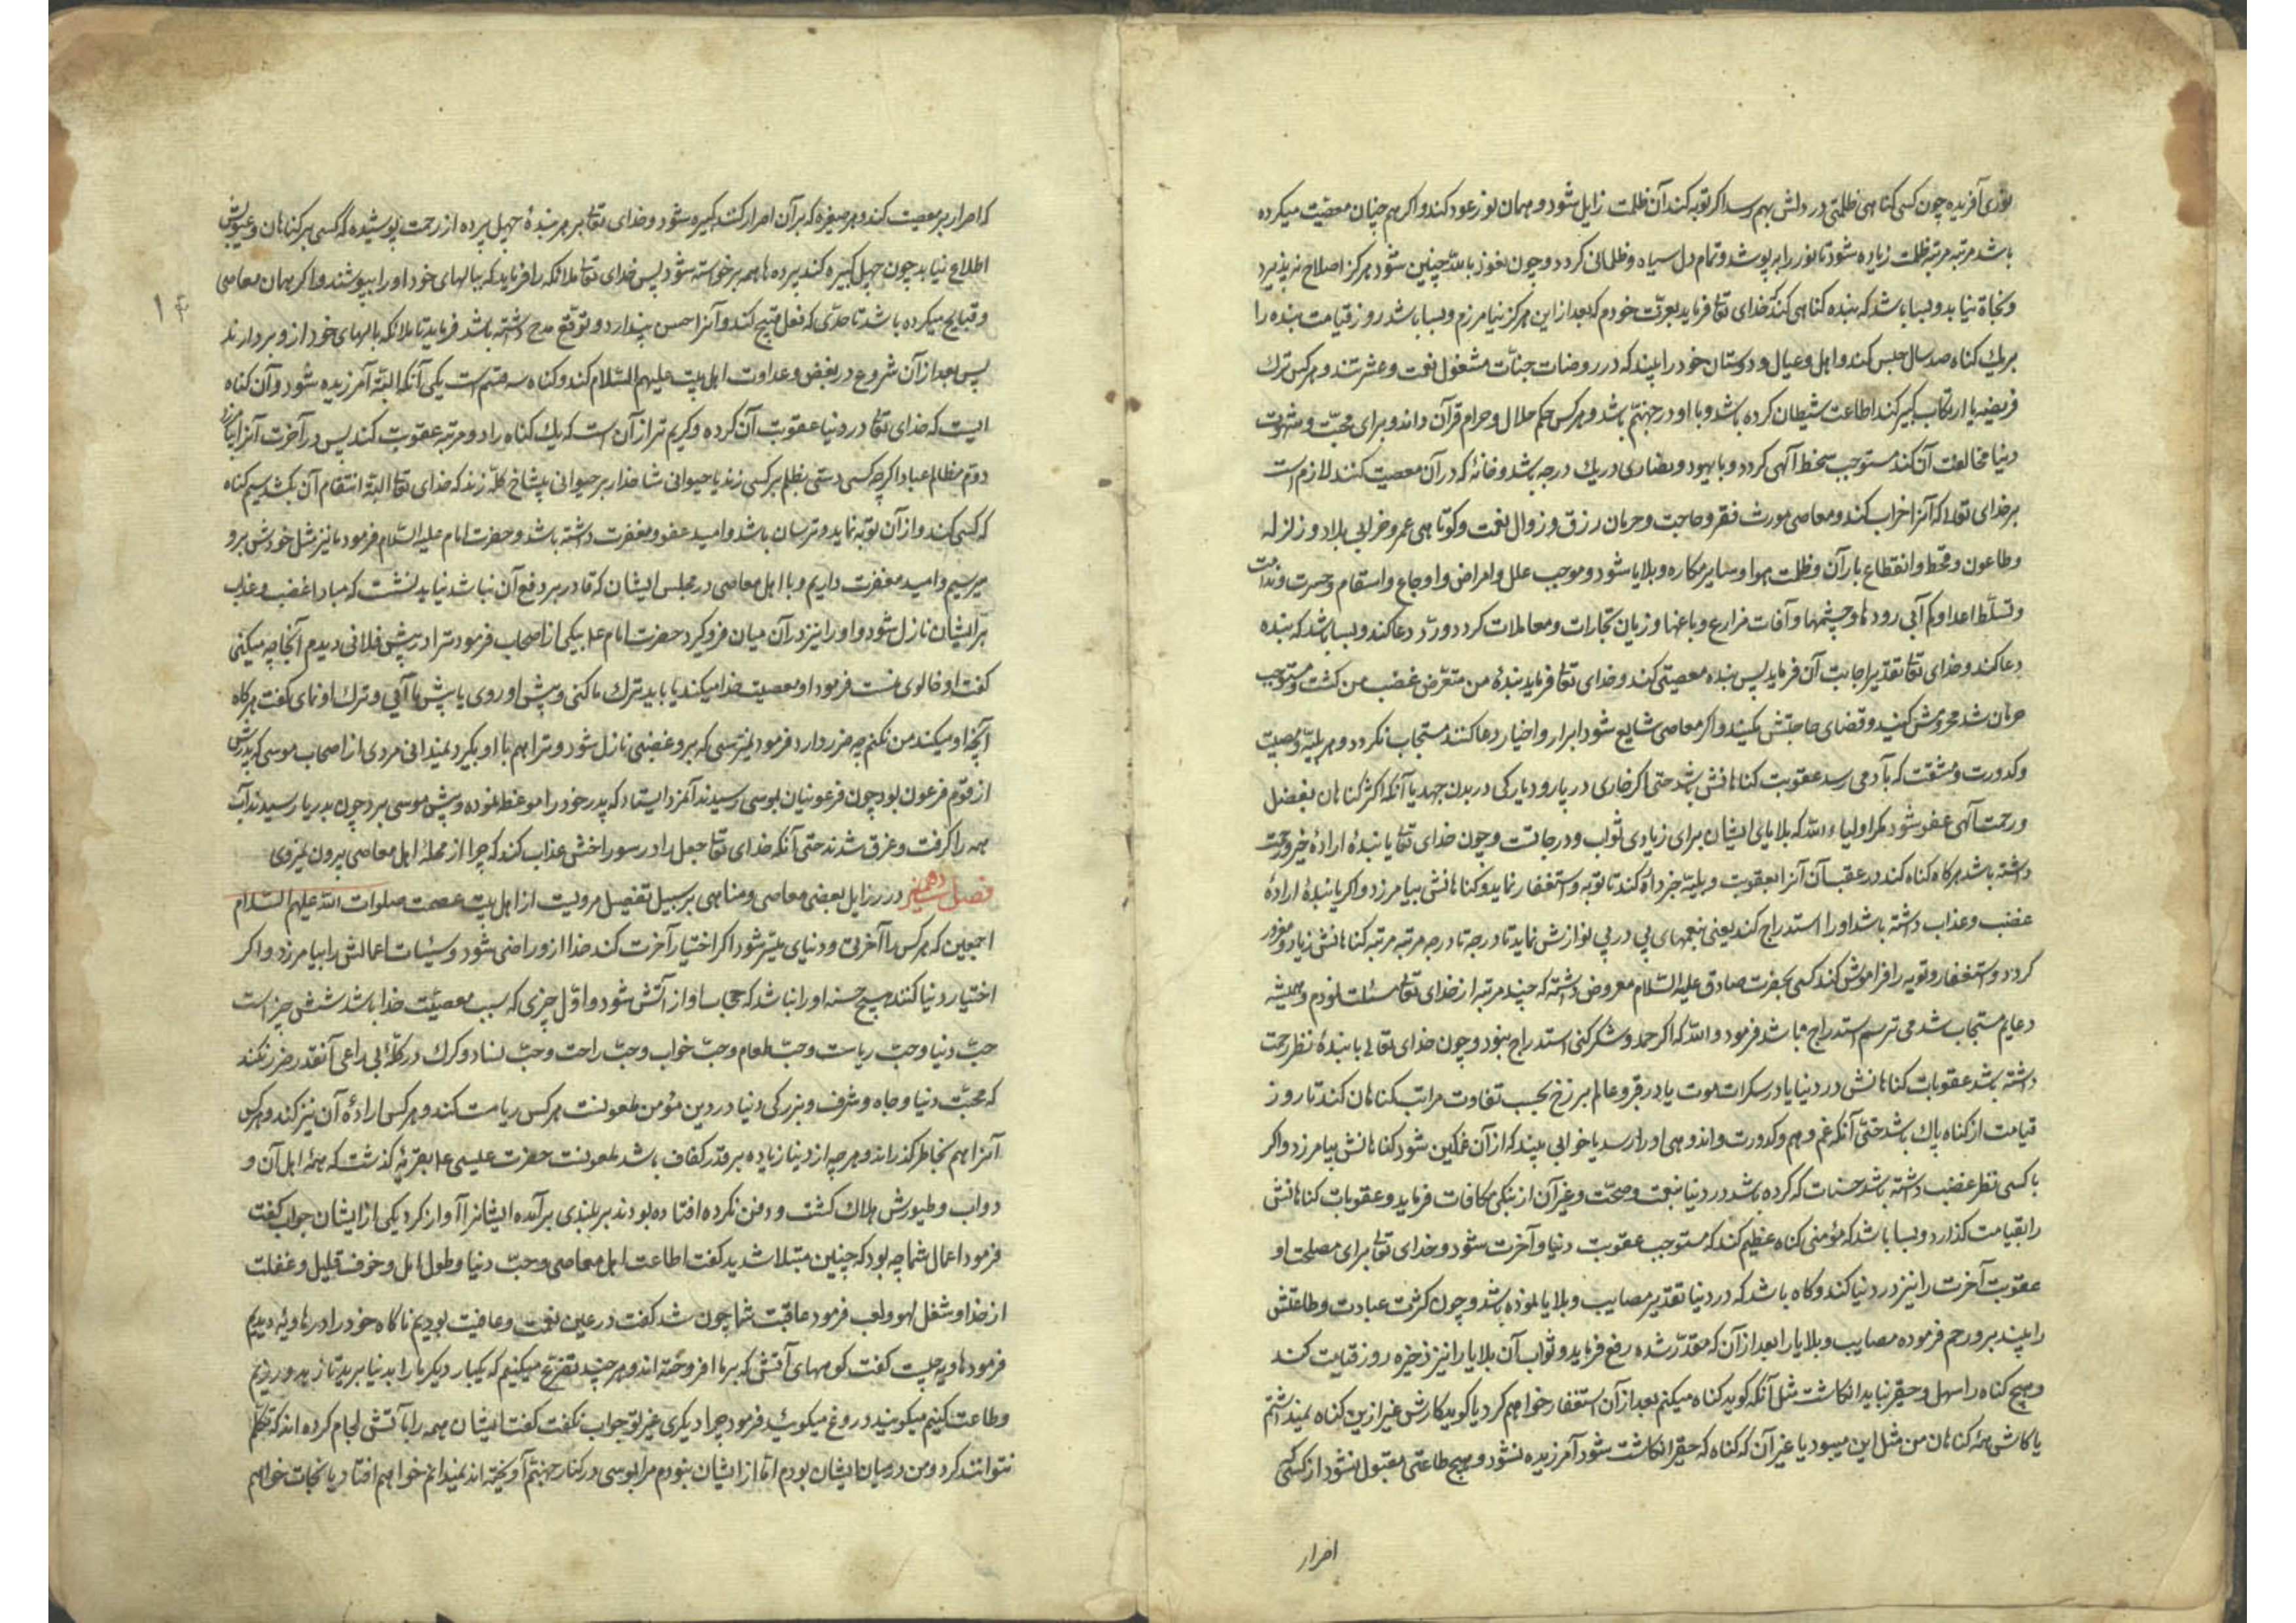 نوری آفریده چون کسی کناهی ظلمتی در دلش بهم رسد اکر توبه کند آن ظلمت زایل شود و همان نور عود کند و اکر هم چنان معصیت میکرده
باشد مرتبه مرتبه ظلمت زیاده شود تا نور را بپوشد و تمام دل سیاه و ظلمانی کردد و چون نعوذ بالله چنین شود هرکز اصلاح نپذیرد
و نجاة نیابد و بسا باشد که بنده کناهی کند که خدای تعا فرماید بعزت خودم که بعد از این هرکز نیامرزم و بسا باشد روز قیامت بنده را
بریك کناه صد سال حبس کند و اهل و عیال و دوستان خود را بیند که در روضات جنات مشغول نعمت و عشرتند و هرکس ترك
فریضه یا ارتکاب کبیر کند اطاعت شیطان کرده باشد و با او در جهنم باشد و هرکس حکم حلال و حرام قرآن داند و برای محبت و شهوت
دنیا مخالفت آن کند مستوجب سخط آلهی کردد و با یهود و نصاری در یك درجه باشد و خانهٔ که در آن معصیت کنند لازم است
بر خدای تعا که آنرا خراب کند و معاصی مورث فقر و حاجت و حرمان رزق و زوال نعمت و کوتاهی عمر و خرابی بلاد و زلزله
و طاعون و قحط و انقطاع باران و ظلمت هوا و سایر مکاره و بلایا شود و موجب علل و امراض و اوجاع و اسقام و حسرت و ندامت
و تسلط اعدا و کم آبی رودها و چشمها و آفات مزارع و باغها و زیان تجارات و معاملات کردد و رد دعا کند و بسا باشد که بنده
دعا کند و خدای تعا تقدیر اجابت آن فرماید پس بنده معصیتی کند و خدای تعا فرماید بندهٔ من متعرض غضب من کشت و مستوجب
حرمان شد محرومش کنید و قضای حاجتش مکنید و اکر معاصی شایع شود ابرار و اخیار دعا کنند مستجاب نکردد و هر بلیه و مصیبت
و کدورت و مشقت که بآدمی رسد عقوبت کناهانش باشد حتی اکر خاری در پا رود یا رکی در بدن جهد با آنکه اکثر کناهان بفضل
و رحمت آلهی عفو شود مکر اولیاء الله که بلایای ایشان برای زیادتی ثواب و درجاتست و چون خدای تعا با بندهٔ ارادهٔ خیر و رحمت
داشته باشد هرکاه کناه کند در عقب آن آنرا بعقوبت و بلیه جزا دهد تا توبه و استغفار نماید و کناهانش بیامرزد و اکر با بندهٔ ارادهٔ
غضب و عذاب داشته باشد او را استدراج کند یعنی بنعمهای پی در پی نوازش نماید تا درجه تا درجه مرتبه مرتبه کناهانش زیاد و مغرور
کردد و استغفار و توبه را فراموش کند کسی بحضرت صادق علیه السلام معروض داشته که چند مرتبه از خدای تعا مسئلت نمودم و همیشه
دعایم مستجاب شد می ترسم استدراج باشد فرمود والله که اکر حمد و شکر کنی استدراج نبود و چون خدای تعالی با بندهٔ نظر رحمت
داشته باشد عقوبات کناهانش در دنیا یا در سکرات موت یا در قبر و عالم برزخ بحسب تفاوت مراتب کناهان کند تا روز
قیامت از کناه پاك باشد حتی آنکه غم و هم و کدورت و اندوهی او را رسد یا خوابی بیند که از آن غمکین شود کناهانش بیامرزد و اکر
با کسی نظر غضب داشته باشد حسنات که کرده باشد در دنیا بنعمت و صحت و غیر آن از نیکی مکافات فرماید و عقوبات کناهانش
را بقیامت کذارد و بسا باشد که مؤمنی کناه عظیم کند که مستوجب عقوبت دنیا و آخرت شود و خدای تعا برای مصلحت او
عقوبت آخرت را نیز در دنیا کند و کاه باشد که در دنیا تقدیر مصایب و بلایا نموده باشد و چون کثرت عبادت و طاعتش
را بیند برو رحم فرموده مصایب و بلایا را بعد از آن که مقدر شده رفع فرماید و ثواب آن بلایا را نیز ذخیره روز قیامت کند
و هیچ کناه را سهل و حقیر نباید انکاشت مثل آنکه کوید کناه میکنم بعد از آن استغفار خواهم کرد یا کوید کارش غیر ازین کناه نمیداشتم
یا کاش همه کناهان من مثل این میبود یا غیر آن که کناه که حقیر انکاشت شود آمرزیده نشود و هیچ طاعتی مقبول نشود از کسی
اصرار
که اصرار بر معصیت کند و هر صغیره که بر آن اصرار کنند کبیره شود و خدای تعا بر هر بندهٔ چهل پرده از رحمت پوشیده که کسی بر کناهان و عیوبش
اطلاع نیابد چون چهل کبیره کند پرده ها همه برخواسته شود پس خدای تعا ملائکه را فرماید که ببالهای خود او را بپوشند و اکر همان معاصی
و قبایح میکرده باشد تا حدی که فعل قبیح کند و آنرا حسن پندارد و توقع مدح داشته باشد فرماید تا ملائکه بالهای خود از و بردارند
پس بعد از آن شروع در بغض و عداوت اهل بیت علیهم السلام کند و کناه سه قسم است یکی آنکه البته آمرزیده شود و آن کناه
ایست که خدای تعا در دنیا عقوبت آن کرده و کریم تر از آن است که یك کناه را دو مرتبه عقوبت کند پس در آخرت آنرا بیامرزد
دوم مظالم عباد اکر چه کسی دستی بظلم بر کسی زند یا حیوانی شاخدار بر حیوانی بیشاخ کله زند که خدای تعا البته انتقام آن بکشد سیم کناه
که کسی کند و از آن توبه نماید و ترسان باشد و امید عفو و مغفرت داشته باشد و حضرت امام علیه السلام فرمود ما نیز مثل خودش برو
میرسیم و امید مغفرت داریم و با اهل معاصی در مجلس ایشان که قادر بر دفع آن نباشد نباید نشست که مبادا غضب و عذاب
بر ایشان نازل شود و او را نیز در آن میان فرو کیرد حضرت امام ع بیکی از اصحاب فرمود ترا در پیش فلانی دیدم آنجا چه میکنی
کفت او خالوی منست فرمود او معصیت خدا میکند یا باید ترك ما کنی و پیش او روی یا پیش ما آیی و ترك او نمای کفت هرکاه
آنچه او میکند من نکنم چه ضرر دارد فرمود نمیترسی که برو غضبی نازل شود و ترا هم با او بکیرد نمیدانی مردی از اصحاب موسی که پدرش
از قوم فرعون بود چون فرعونیان بموسی رسیدند آنمرد ایستاد که پدر خود را موعظه نموده و پیش موسی برد چون بدریا رسیدند آب
همه را کرفت و غرق شدند حتی آنکه خدای تعا جعل را در سوراخش عذاب کند که چرا از محلهٔ اهل معاصی بیرون نمیروی
فصل در رزایل بعضی معاصی و مناهی بر سبیل تفصیل مرویست از اهل بیت عصمت صلوات الله علیهم السلام
اجمعین که هرکس را آخرتی و دنیای میسر شود اکر اختیار آخرت کند خدا از و راضی شود و سیئات اعمالش را بیامرزد و اکر
اختیار دنیا کنند هیچ حسنه او را نباشد که حجاب او از آتش شود و اول چیزی که سبب معصیت خدا باشد شش چیز است
حب دنیا و حب ریاست و حب طعام و حب خواب و حب راحت و حب نساء و کرك در کلهٔ بی راعی آنقدر ضرر نکند
که محبت دنیا و جاه و شرف و بزرکی دنیا در دین مؤمن ملعونست هرکس ریاست کند و هرکس ارادهٔ آن نیز کند و هرکس
آنرا هم بخاطر کذراند و هرچه از دنیا زیاده بر قدر کفاف باشد ملعونست حضرت عیسی ع بقریهٔ کذشت که همهٔ اهل آن و
دواب و طیورش هلاك کشته و دفن نکرده افتاده بودند بر بلندی برآمده ایشانرا آواز کرد یکی از ایشان جواب کفت
فرمود اعمال شما چه بود که چنین مبتلا شدید کفت اطاعت اهل معاصی و حب دنیا و طول امل و خوف قلیل و غفلت
از خدا و شغل لهو و لعب فرمود عاقبت شما چون شد کفت در عین نعمت و عافیت بودیم ناکاه خود را در هاویه دیدیم
فرمود هاویه چیست کفت کوههای آتشی که بر ما افروخته اند و هر چند تضرع میکنیم که یکبار دیکر ما را بدنیا برید تا زهد ورزیم
و طاعت کنیم میکویند دروغ میکوئید فرمود چرا دیکری غیر تو جواب نکفت کفت ایشان همه را با آتشی لجام کرده اند که تکلم
نتوانند کرد و من در میان ایشان بودم اما از ایشان نبودم مرا بموسی در کنار جهنم آویخته اند نمیدانم خواهم افتاد یا نجات خواهم